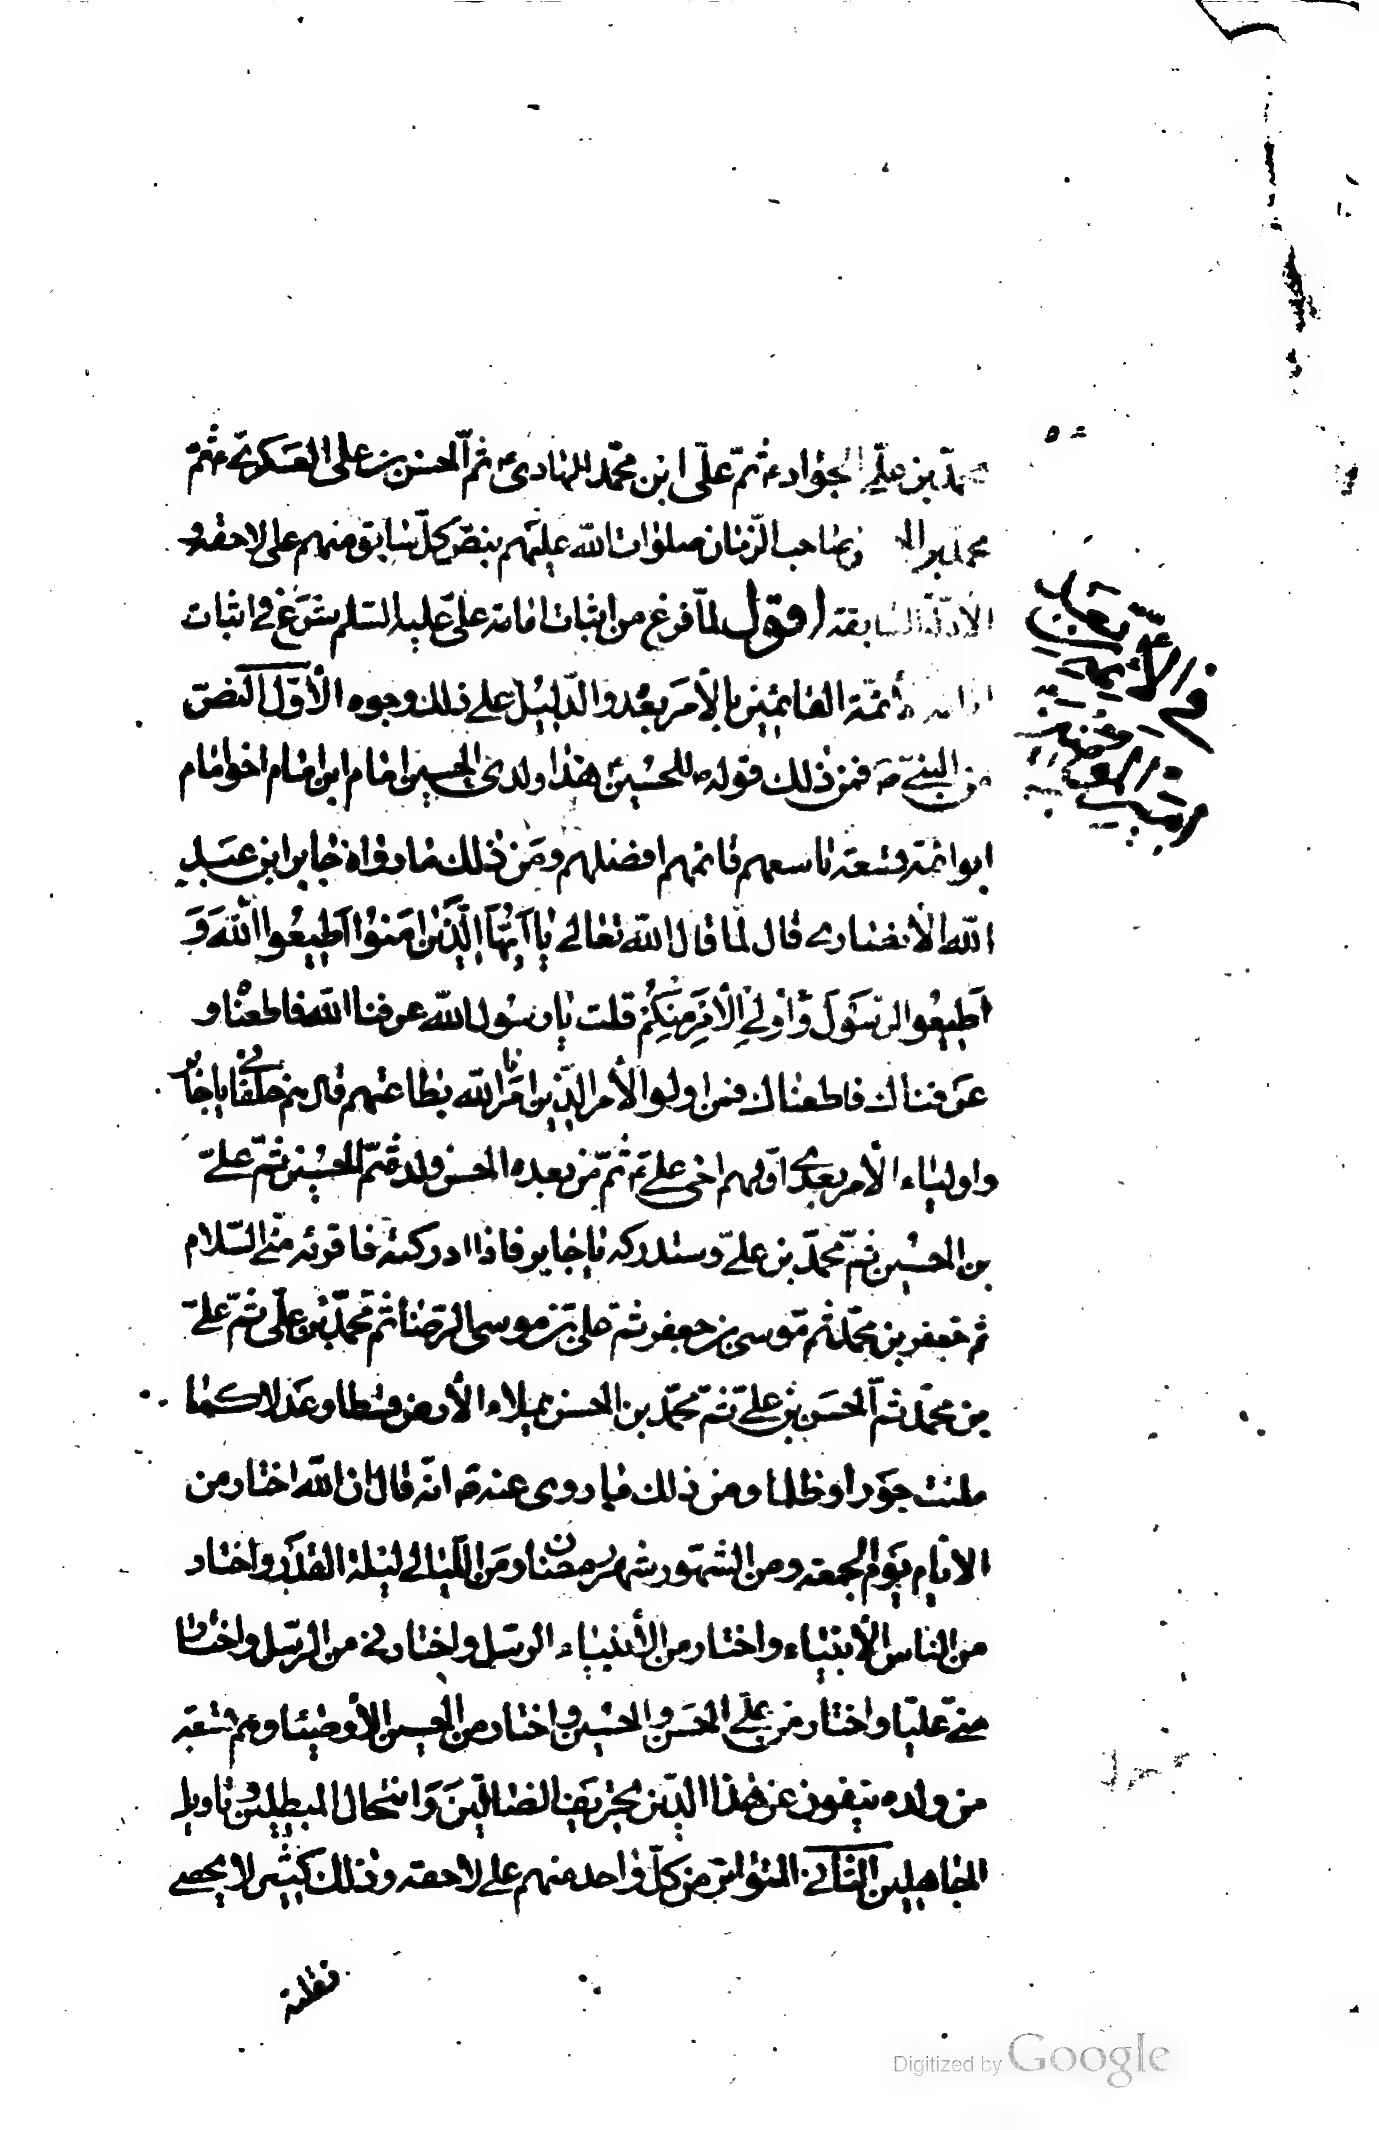 محمد بن علي الجواد ع ثم علي ابن محمد الهادي ع ثم الحسن بن علي العسكري ع ثم
محمد بن صاحب الزمان صلوات الله عليهم بنص كل سابق منهم على لاحقه و
الادلة السابقة اقول لما فرغ من اثبات امامة علي عليه السلم شرع في اثبات
الأئمة القائمين بالأمر بعده والدليل على ذلك وجوه الأول النص
من النبي ص فمن ذلك قوله ص للحسين ع هذا ولدي الحسين امام ابن امام اخو امام
ابو ائمة تسعة تاسعهم قائمهم افضلهم ومن ذلك ما رواه جابر ابن عبد
الله الأنصاري قال لما قال الله تعالى يا أيها الذين امنوا اطيعوا الله و
أطيعوا الرسول وأولي الأمر منكم قلت يا رسول الله عرفنا الله فاطعناه و
عرفناك فاطعناك فمن اولوا الأمر الذين امرنا الله بطاعتهم قال هم خلفائي يا جابر
واولياء الأمر بعدي اولهم اخي علي ثم من بعده الحسن ولده ثم الحسين ثم علي
بن الحسين ثم محمد بن علي وستدركه يا جابر فاذا ادركته فاقرئه مني السلام
ثم جعفر بن محمد ثم موسى بن جعفر ثم علي بن موسى الرضا ثم محمد بن علي ثم علي
بن محمد ثم الحسن بن علي ثم محمد بن الحسن يملاء الأرض قسطا وعدلا كما
ملئت جورا وظلما ومن ذلك ما روى عنه ص انه قال ان الله اختار من
الايام يوم الجمعة ومن الشهور شهر رمضان ومن الليالي ليلة القدر واختار
من الناس الأنبياء واختار من الأنبياء الرسل واختارني من الرسل واختار
مني عليا واختار من علي الحسن والحسين واختار من الحسين الأوصياء وهم تسعة
من ولده ينفون عن هذا الدين تحريف الضالين وانتحال المبطلين وتاويل
الجاهلين الثاني المتواتر من كل واحد منهم على لاحقه وذلك كثير لا يحصى
نقلته